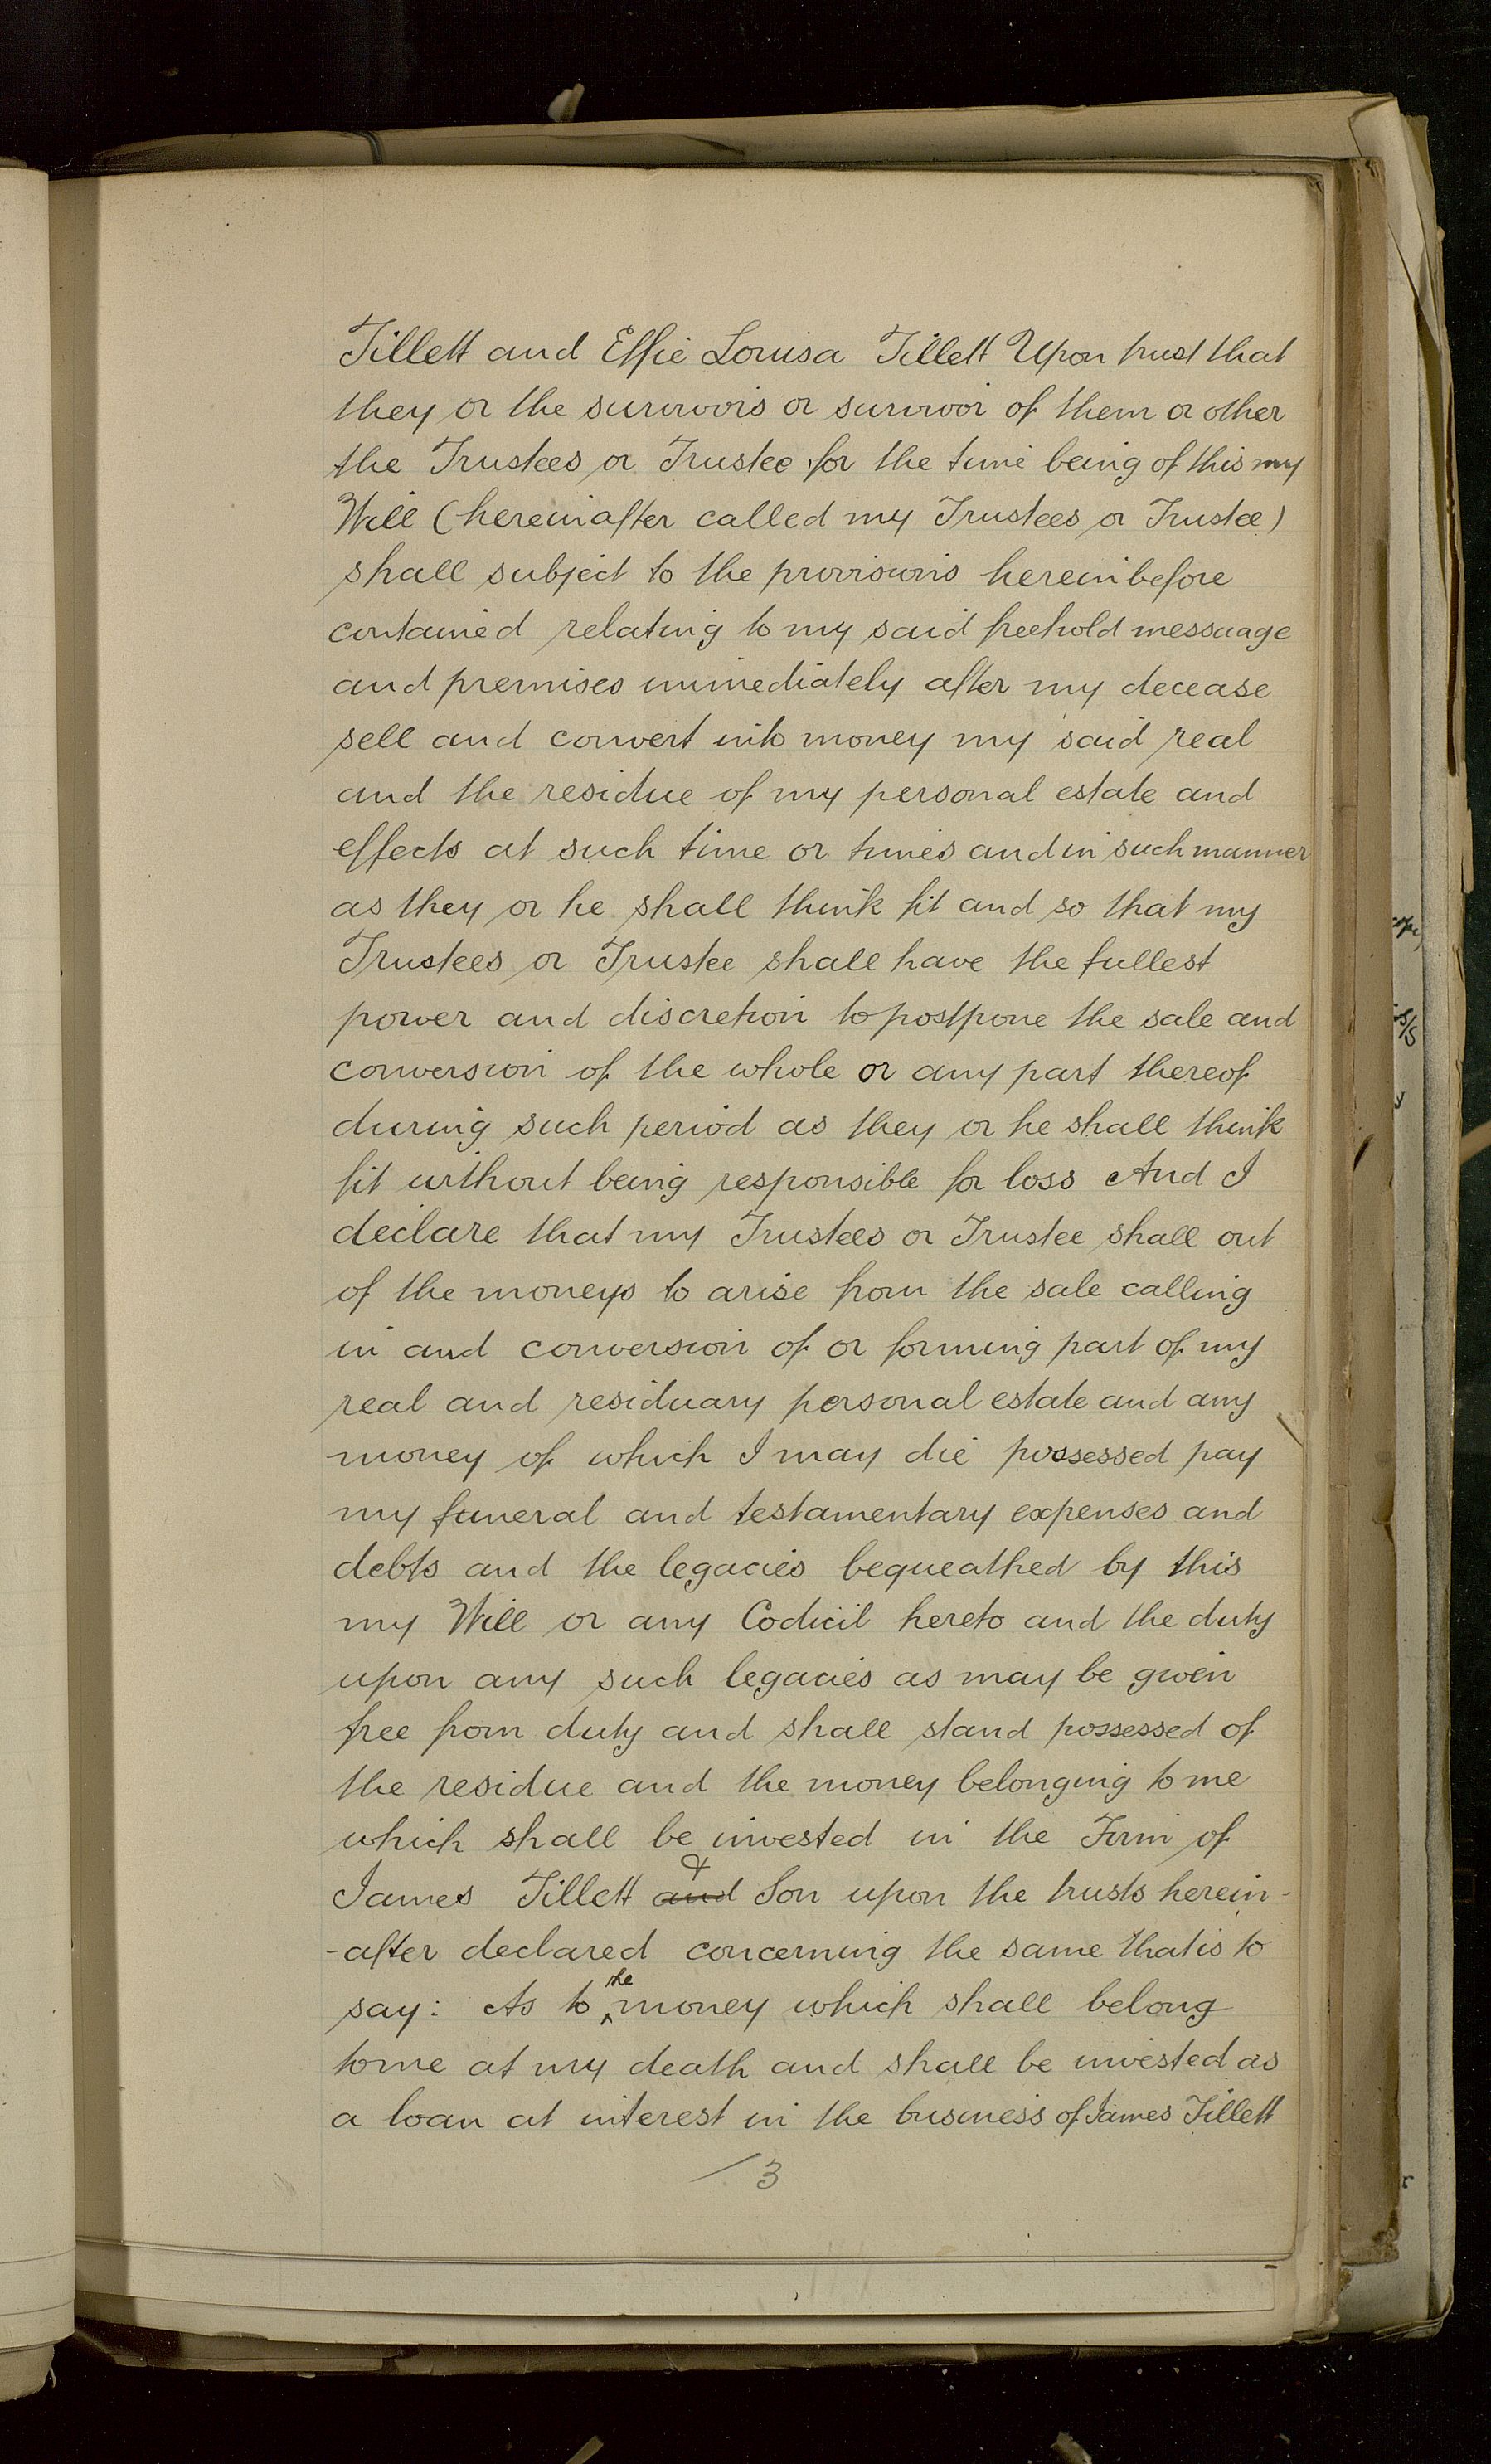 Tillett and Effie Louisa Tillett Upon trust that
they or the survivors or survivor of them or other
the Trustees or Trustee for the time being of this my
Will (hereinafter called my Trustees or Trustee)
shall subject to the provisions hereinbefore
contained relating to my said freehold messuage
and premises immediately after my decease
sell and convert into money my said real
and the residue of my personal estate and
effects at such time or times and in such manner
as they or he shall think fit and so that my
Trustees or Trustee shall have the fullest
power and discretion to postpone the sale and
conversion of the whole or any part thereof
during such period as they or he shall think
fit without being responsible for loss And I
declare that my Trustees or Trustee shall out
of the moneys to arise from the sale calling
in and conversion of or forming part of my
real and residuary personal estate and any
money of which I may die possessed pay
my funeral and testamentary expenses and
debts and the legacies bequeathed by this
my Will or any Codicil hereto and the duty
upon any such legacies as may be given
free from duty and shall stand possessed of
the residue and the money belonging to me
which shall be invested in the Firm of
James Tillett and & Son upon the trusts herein-
-after declared concerning the same that is to
say: As to the money which shall belong
to me at my death and shall be invested as
a loan at interest in the business of James Tillett
/3